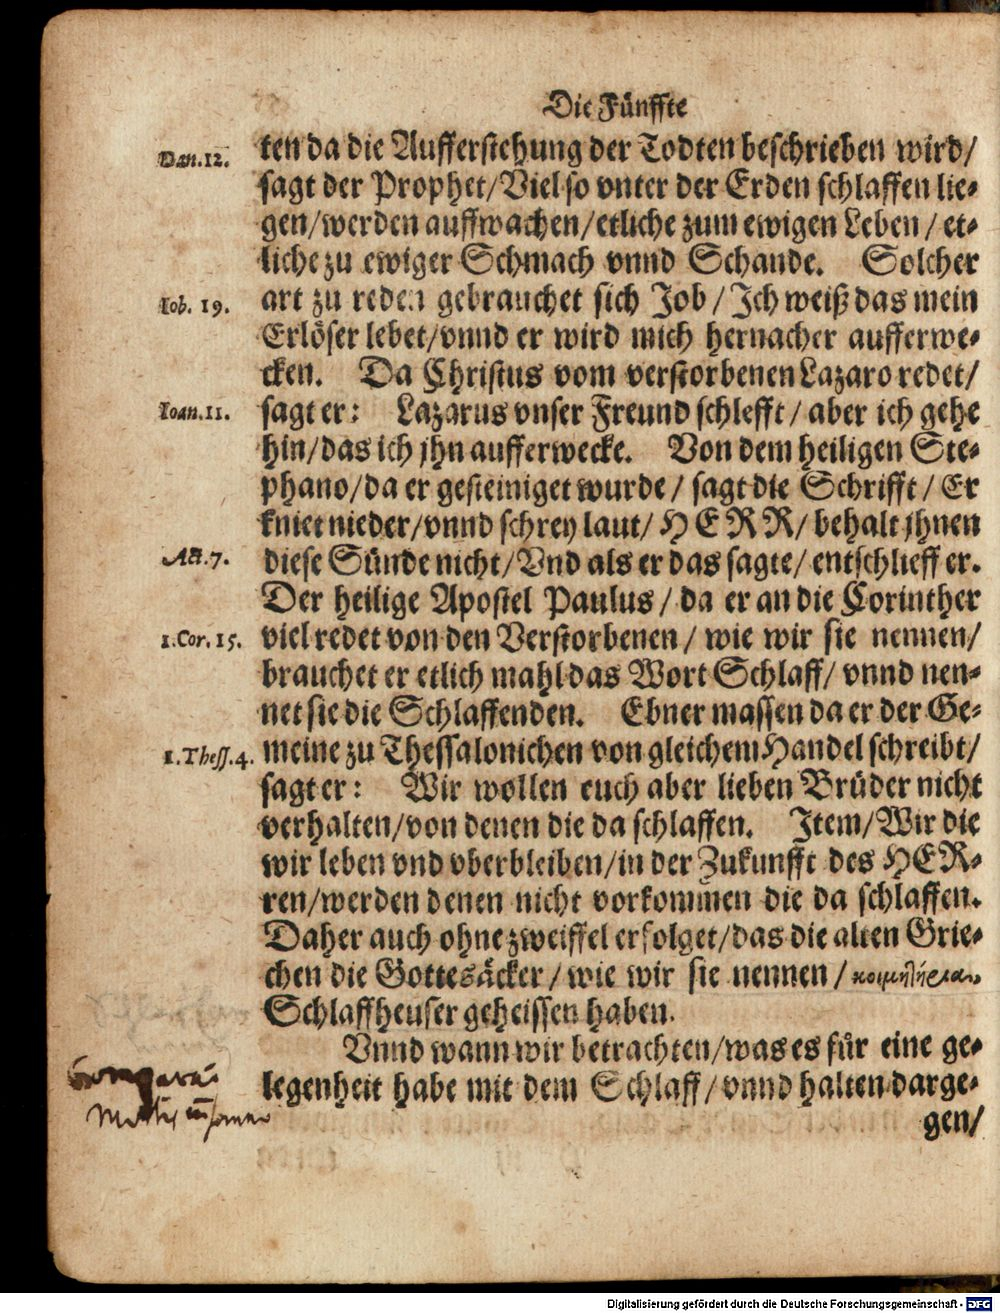 Die Fünffte
Dan.12.
ten da die Aufferstehung der Todten beschrieben wird/
sagt der Prophet/Viel so vnter der Erden schlaffen lie-
gen/werden auffwachen/etliche zum ewigen Leben/ et-
liche zu ewiger Schmach vnnd Schande. Solcher
Iob. 19.
art zu reden gebrauchet sich Job/Ich weiß das mein
Erlöser lebet/vnnd er wird mich hernacher aufferwe-
cken. Da Christus vom verstorbenen Lazaro redet/
Ioan.11.
sagt er: Lazarus vnser Freund schlefft/aber ich gehe
hin/das ich jhn aufferwecke. Von dem heiligen Ste-
phano/da er gesteiniget wurde/ sagt die Schrifft/Er
kniet nieder/vnnd schrey laut/HERR/behalt jhnen
Act.7.
diese Sünde nicht/Vnd als er das sagte/entschlieff er.
Der heilige Apostel Paulus/da er an die Corinther
1.Cor. 15.
viel redet von den Verstorbenen/ wie wir sie nennen/
brauchet er etlich mahl das Wort Schlaff/ vnnd nen-
net sie die Schlaffenden. Ebner massen da er der Ge-
1.Thess.4.
meine zu Thessalonichen von gleichem Handel schreibt/
sagt er: Wir wollen euch aber lieben Brüder nicht
verhalten/von denen die da schlaffen. Item/Wir die
wir leben vnd vberbleiben/in der Zukunfft des HER-
ren/werden denen nicht vorkommen die da schlaffen.
Daher auch ohne zweiffel erfolget/das die alten Grie-
chen die Gottesäcker/wie wir sie nennen/
Schlaffheuser geheissen haben.
Vnnd wann wir betrachten/was es für eine ge-
legenheit habe mit dem Schlaff/vnnd halten darge-
gen/
Digitalisierung gefördert durch die Deutsche Forschungsgemeinschaft - DFG